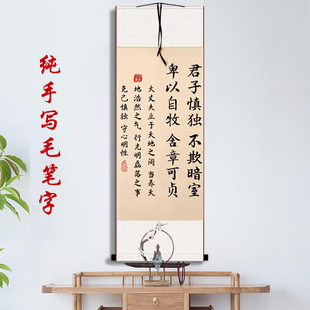 纯手写毛笔字
君子慎独 不欺暗室
卑以自牧 含章可贞
大丈夫立于天地之间 当养天
地浩然之气 行光明磊落之事
克己慎独 守心明性